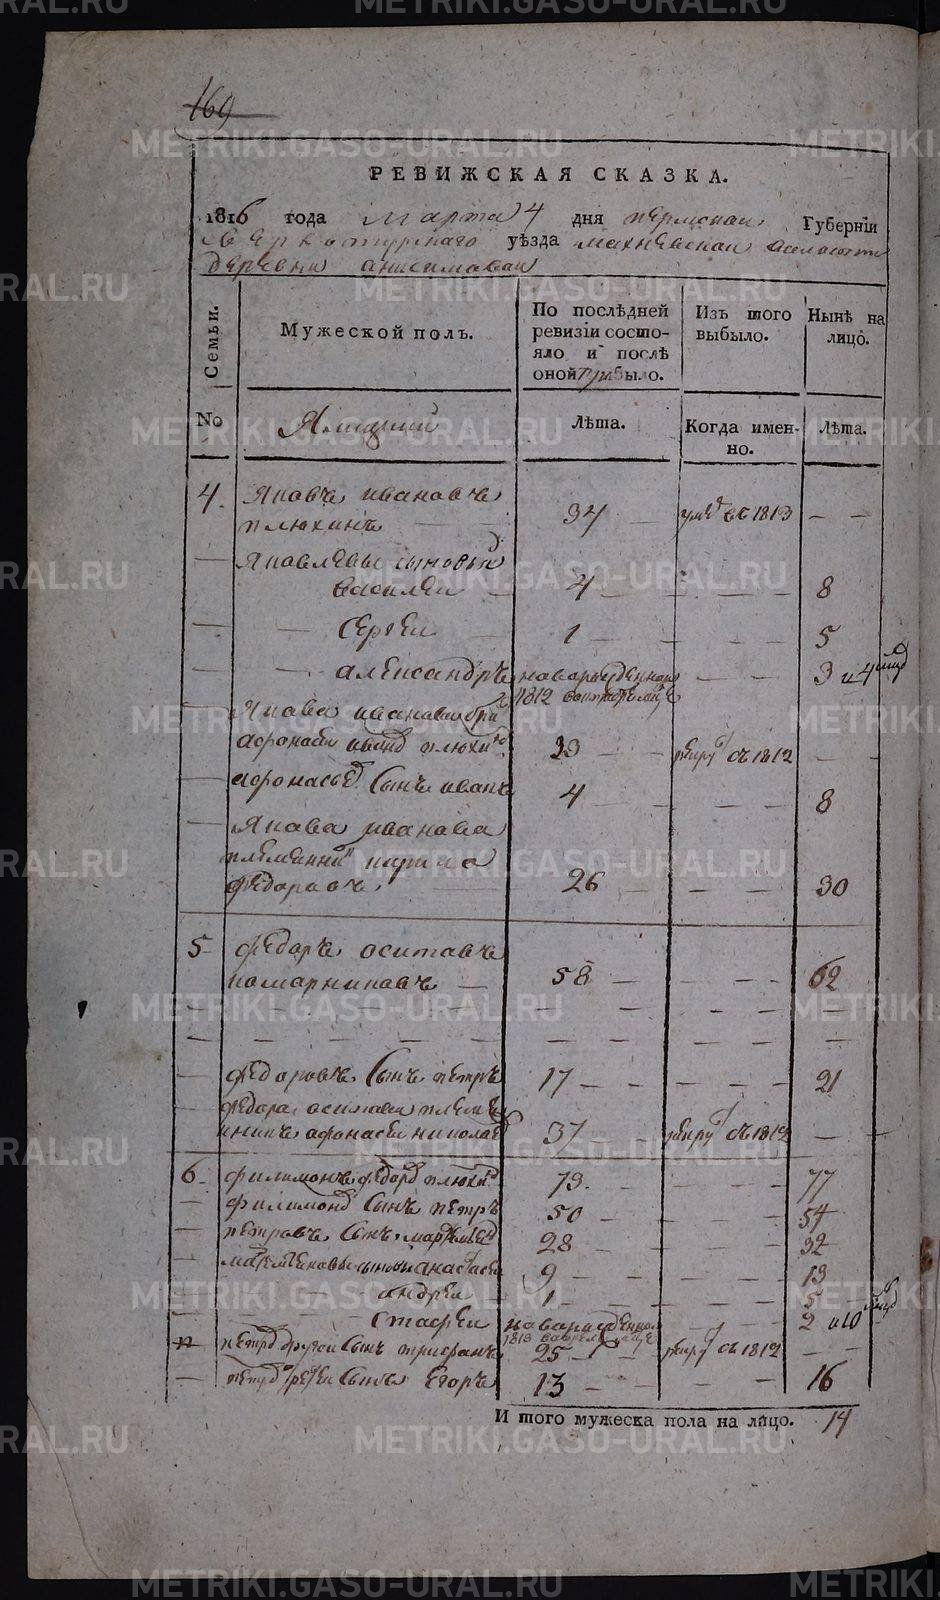 169
РЕВИЖСКАЯ СКАЗКА.
1816 года марта 4 дня пермской Губерніи
верхотурскаго уѣзда махневской волости
деревни анисимавай
Семьи. Мужеской полъ. По послѣдней ревизіи состояло и послѣ оной прибыло. Изъ того выбыло. Нынѣ на лицо.
No Лѣта. Когда именно. Лѣта.
4. Яковъ ивановъ
плюхинъ 34 умре въ 1813 — —
— Яковлевы сыновья
василеи 4 8
— сергеи 1 5
— александръ новорожденнои 3 и 4
1812
— Якова иванова
афонасеи плюхинъ 23 рекру съ 1812 —
— афонасьев сынъ иванъ 4 8
— Якова иванова
племянникъ
федоровъ 26 30
5 федоръ осиповъ
комарниковъ 58 62
— федоровъ сынъ петръ 17 21
— федора осипова племя
нникъ афонасеи николаев 37 рекру съ 1812 — —
6. филимонъ федоров плюхин 73. 77
— филимонов сынъ петръ 50 54
— петровъ сынъ 28 32
— сыновья 9 13
— андреи 1 5
— новорожденнои 2 и 10
1813
п петра другои сынъ трифанъ 25 рекру съ 1812 — —
— петра третеи сынъ Егоръ 13 16
И того мужеска пола на лицо. 14
METRIKI.GASO-URAL.RU